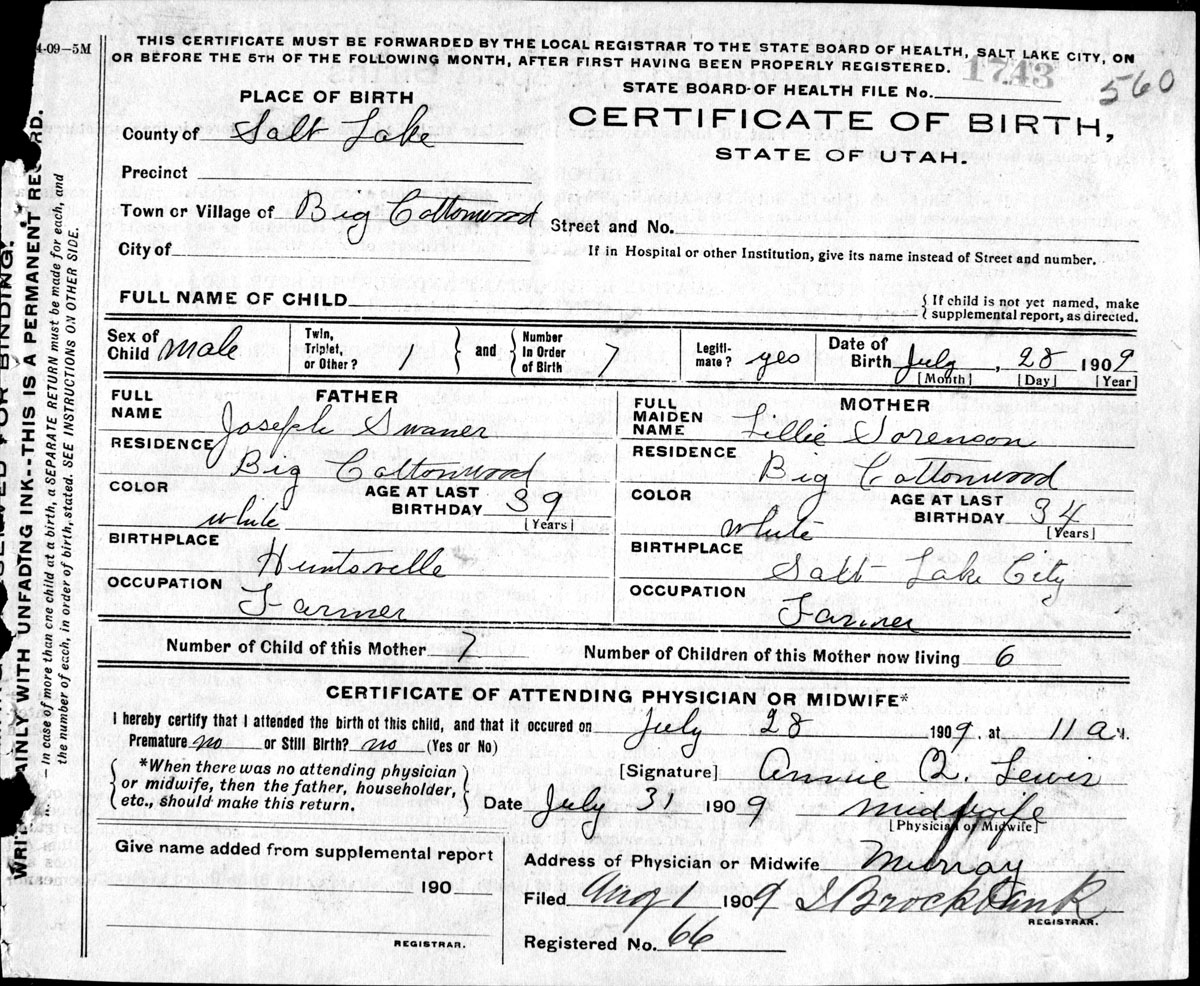 4-09-5M
THIS CERTIFICATE MUST BE FORWARDED BY THE LOCAL REGISTRAR TO THE STATE BOARD OF HEALTH, SALT LAKE CITY, ON
OR BEFORE THE 5TH OF THE FOLLOWING MONTH, AFTER FIRST HAVING BEEN PROPERLY REGISTERED. 1743
560
STATE BOARD OF HEALTH FILE No.
PLACE OF BIRTH
CERTIFICATE OF BIRTH,
STATE OF UTAH.
County of Salt Lake
Precinct
Town or Village of Big Cottonwood
Street and No.
City of
If in Hospital or other Institution, give its name instead of Street and number.
FULL NAME OF CHILD
{ If child is not yet named, make
supplemental report, as directed.
Sex of Child male
Twin, Triplet, or Other? 1 } and { Number In Order of Birth 7
Legitimate? yes
Date of Birth July, 28 1909
[Month] [Day] [Year]
FATHER
FULL NAME Joseph Swaner
RESIDENCE Big Cottonwood
COLOR white AGE AT LAST BIRTHDAY 39 [Years]
BIRTHPLACE Huntsville
OCCUPATION Farmer
MOTHER
FULL MAIDEN NAME Lillie Sorenson
RESIDENCE Big Cottonwood
COLOR white AGE AT LAST BIRTHDAY 34 [Years]
BIRTHPLACE Salt Lake City
OCCUPATION Farmer
Number of Child of this Mother 7 Number of Children of this Mother now living 6
CERTIFICATE OF ATTENDING PHYSICIAN OR MIDWIFE*
I hereby certify that I attended the birth of this child, and that it occured on July 28 1909, at 11 a M.
Premature no or Still Birth? no (Yes or No)
{ *When there was no attending physician
or midwife, then the father, householder,
etc., should make this return. }
[Signature] Annie Q. Lewis
Date July 31 1909 midwife
[Physician or Midwife]
Give name added from supplemental report
190
REGISTRAR.
Address of Physician or Midwife Murray
Filed Aug 1 1909 I Brockbank
REGISTRAR.
Registered No. 66
AINLY WITH UNFADING INK--THIS IS A PERMANENT RECORD.
In case of more than one child at a birth, a SEPARATE RETURN must be made for each, and
the number of each, in order of birth, stated. SEE INSTRUCTIONS ON OTHER SIDE.